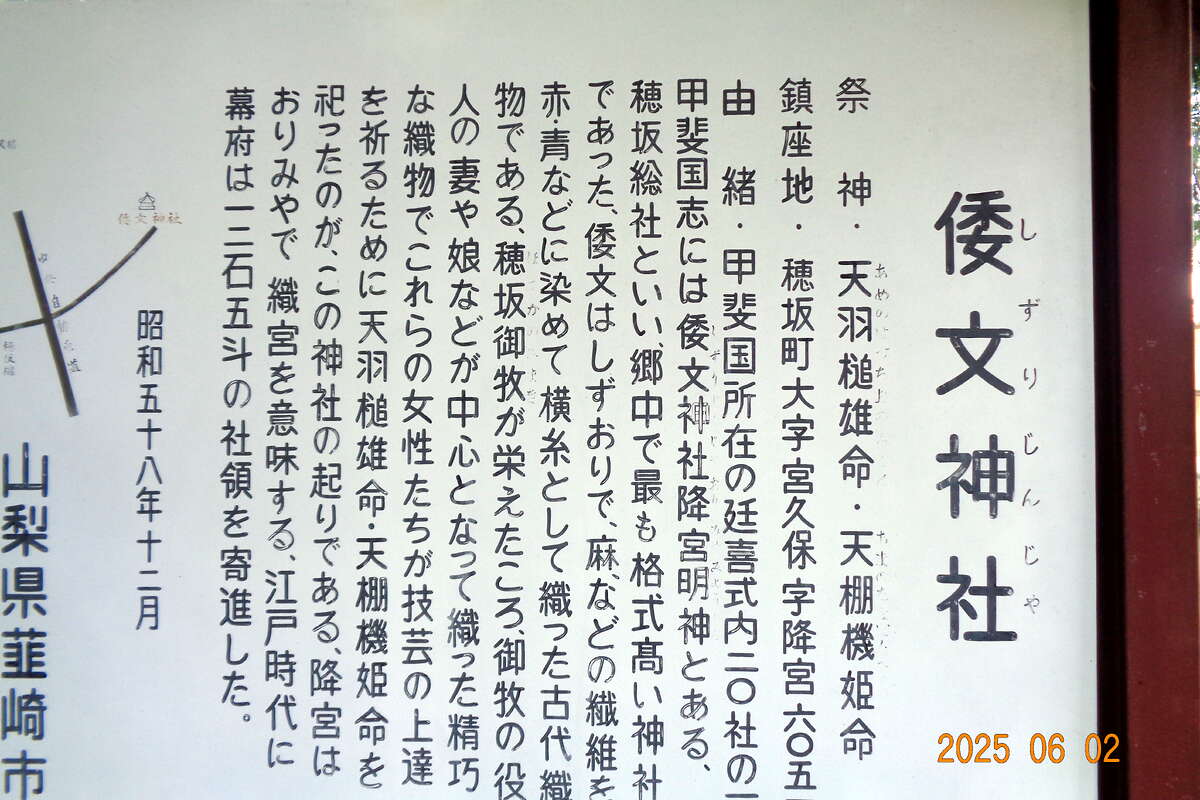 倭文神社
しずりじんじゃ
祭 神・天羽槌雄命・天棚機姫命
鎮座地・穂坂町大字宮久保字降宮六〇五
由 緒・甲斐国所在の廷喜式内二〇社の一
甲斐国志には倭文神社降宮明神とある、
穂坂総社といい、郷中で最も格式髙い神社
であった、倭文はしずおりで、麻、などの繊維を
赤・青などに染めて横糸として織った古代織
物である、穂坂御牧が栄えたころ、御牧の役
人の妻や娘などが中心となって織った精巧
な織物でこれらの女性たちが技芸の上達
を祈るために天羽槌雄命・天棚機姫命を
祀ったのが、この神社の起りである、降宮は
おりみやで 織宮を意味する、江戸時代に
幕府は一二石五斗の社領を寄進した。
昭和五十八年十二月
山梨県韮崎市
倭文神社
2025 06 02